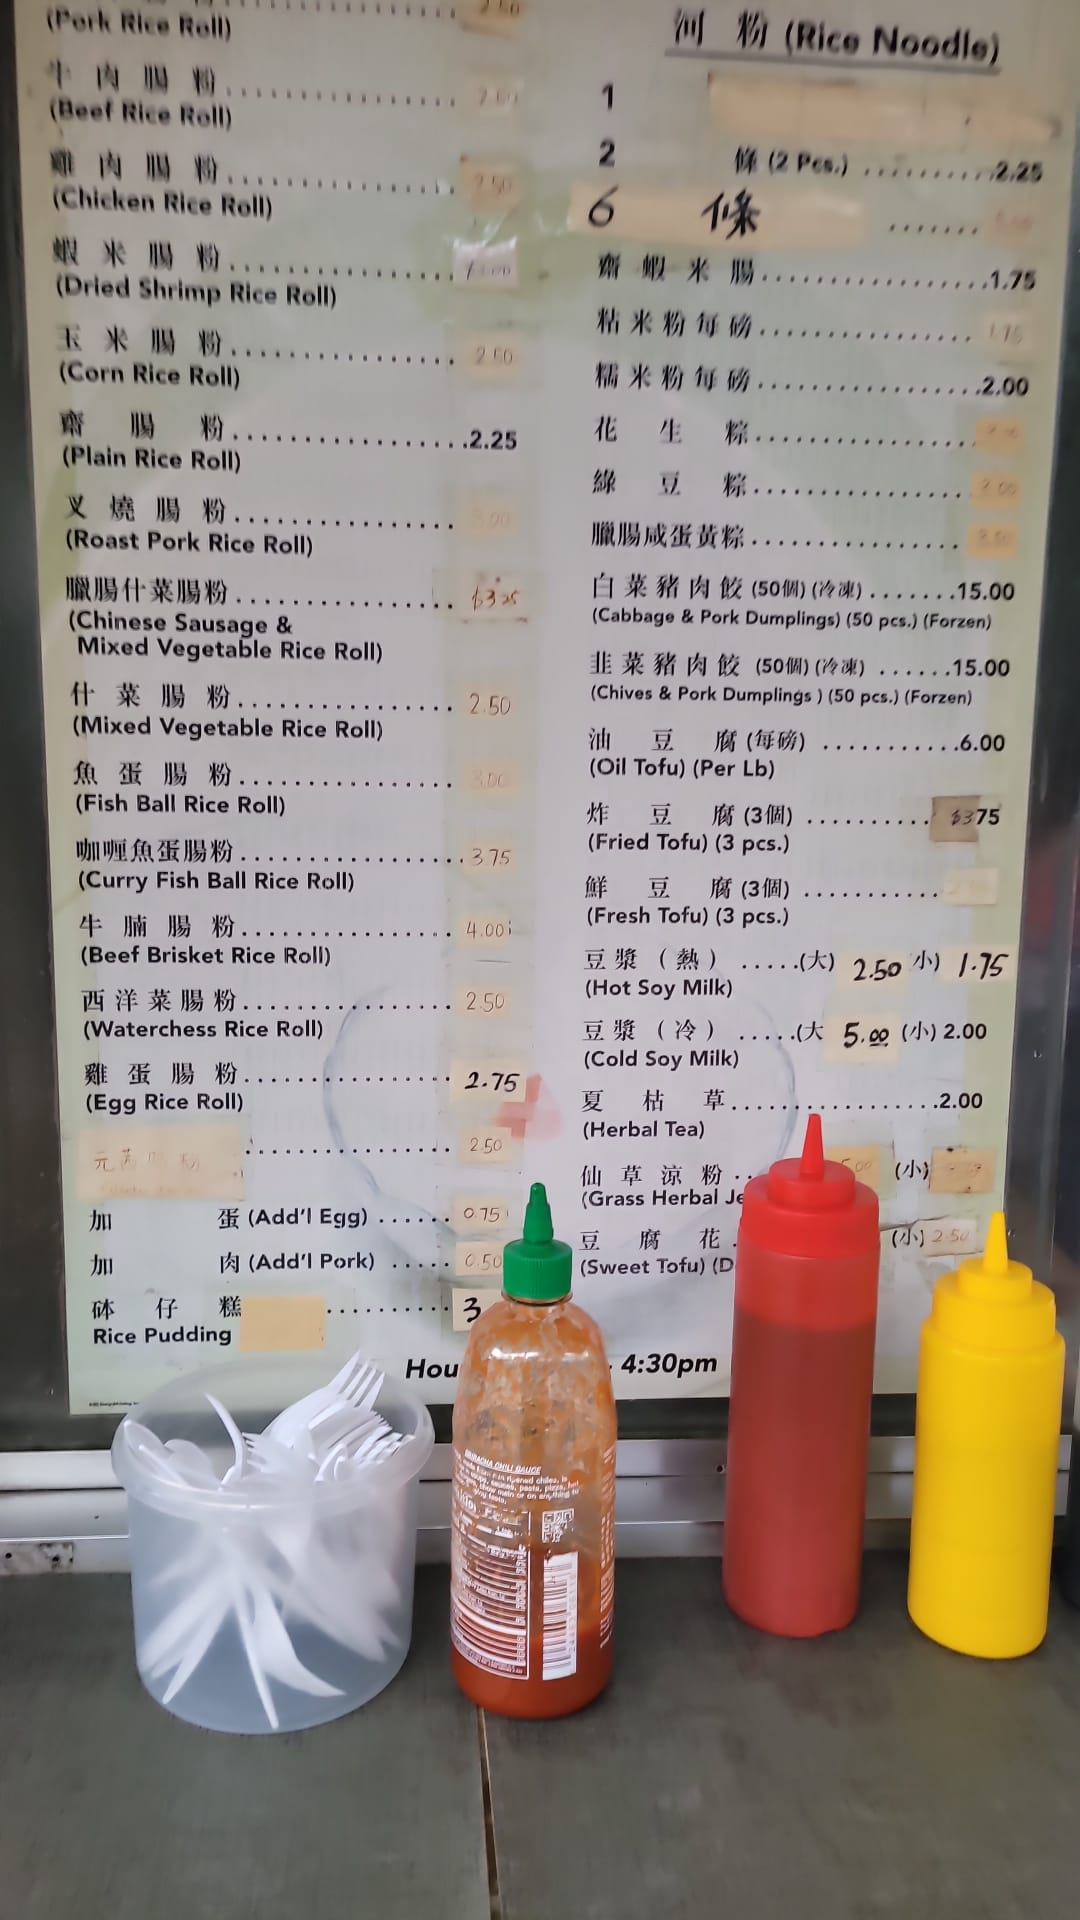 (Pork Rice Roll)
牛肉腸粉........................ 2.50
(Beef Rice Roll)
雞肉腸粉........................ 2.50
(Chicken Rice Roll)
蝦米腸粉........................
(Dried Shrimp Rice Roll)
玉米腸粉........................ 2.50
(Corn Rice Roll)
齋腸粉........................2.25
(Plain Rice Roll)
叉燒腸粉........................ 3.00
(Roast Pork Rice Roll)
臘腸什菜腸粉........................ $3.25
(Chinese Sausage &
Mixed Vegetable Rice Roll)
什菜腸粉........................ 2.50
(Mixed Vegetable Rice Roll)
魚蛋腸粉........................ 3.00
(Fish Ball Rice Roll)
咖喱魚蛋腸粉........................ 3.75
(Curry Fish Ball Rice Roll)
牛腩腸粉........................ 4.00
(Beef Brisket Rice Roll)
西洋菜腸粉........................ 2.50
(Waterchess Rice Roll)
雞蛋腸粉........................ 2.75
(Egg Rice Roll)
........................ 2.50
加蛋 (Add'l Egg) ...... 0.75
加肉 (Add'l Pork) ..... 0.50
砵仔糕 ........... 3
Rice Pudding
河粉 (Rice Noodle)
1
2 條 (2 Pcs.) ..........2.25
6 條 .......
齋蝦米腸..................1.75
粘米粉每磅................. 1.75
糯米粉每磅..................2.00
花生粽.................
綠豆粽................. 3.00
臘腸咸蛋黃粽................ 3.50
白菜豬肉餃 (50個) (冷凍) .......15.00
(Cabbage & Pork Dumplings) (50 pcs.) (Forzen)
韭菜豬肉餃 (50個) (冷凍) ......15.00
(Chives & Pork Dumplings ) (50 pcs.) (Forzen)
油豆腐 (每磅) ...........6.00
(Oil Tofu) (Per Lb)
炸豆腐 (3個) .......... $3.75
(Fried Tofu) (3 pcs.)
鮮豆腐 (3個) ...........
(Fresh Tofu) (3 pcs.)
豆漿 (熱) .....(大) 2.50 小) 1.75
(Hot Soy Milk)
豆漿 (冷) .....(大 5.00 (小) 2.00
(Cold Soy Milk)
夏枯草.................2.00
(Herbal Tea)
仙草涼粉.. 5.00 (小)
(Grass Herbal Je
豆腐花. (小) 2.50
(Sweet Tofu) (D
Hou - 4:30pm
SRIRACHA CHILI SAUCE